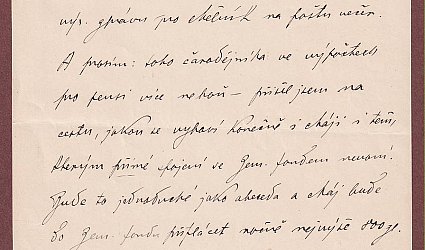 zprávu pro na poštu večer.
A prosím: toho čarodějníka ve výpočtech
pro pensi více – přišel jsem na
cestu, jakou se vybaví konečně i cháji i těm,
kterým přímé spojení se Zem. fondem nevoní.
Bude to jednoduché jako abeceda a cháj bude
do Zem. fondu připlácet ročně nejvýše 800 zl.